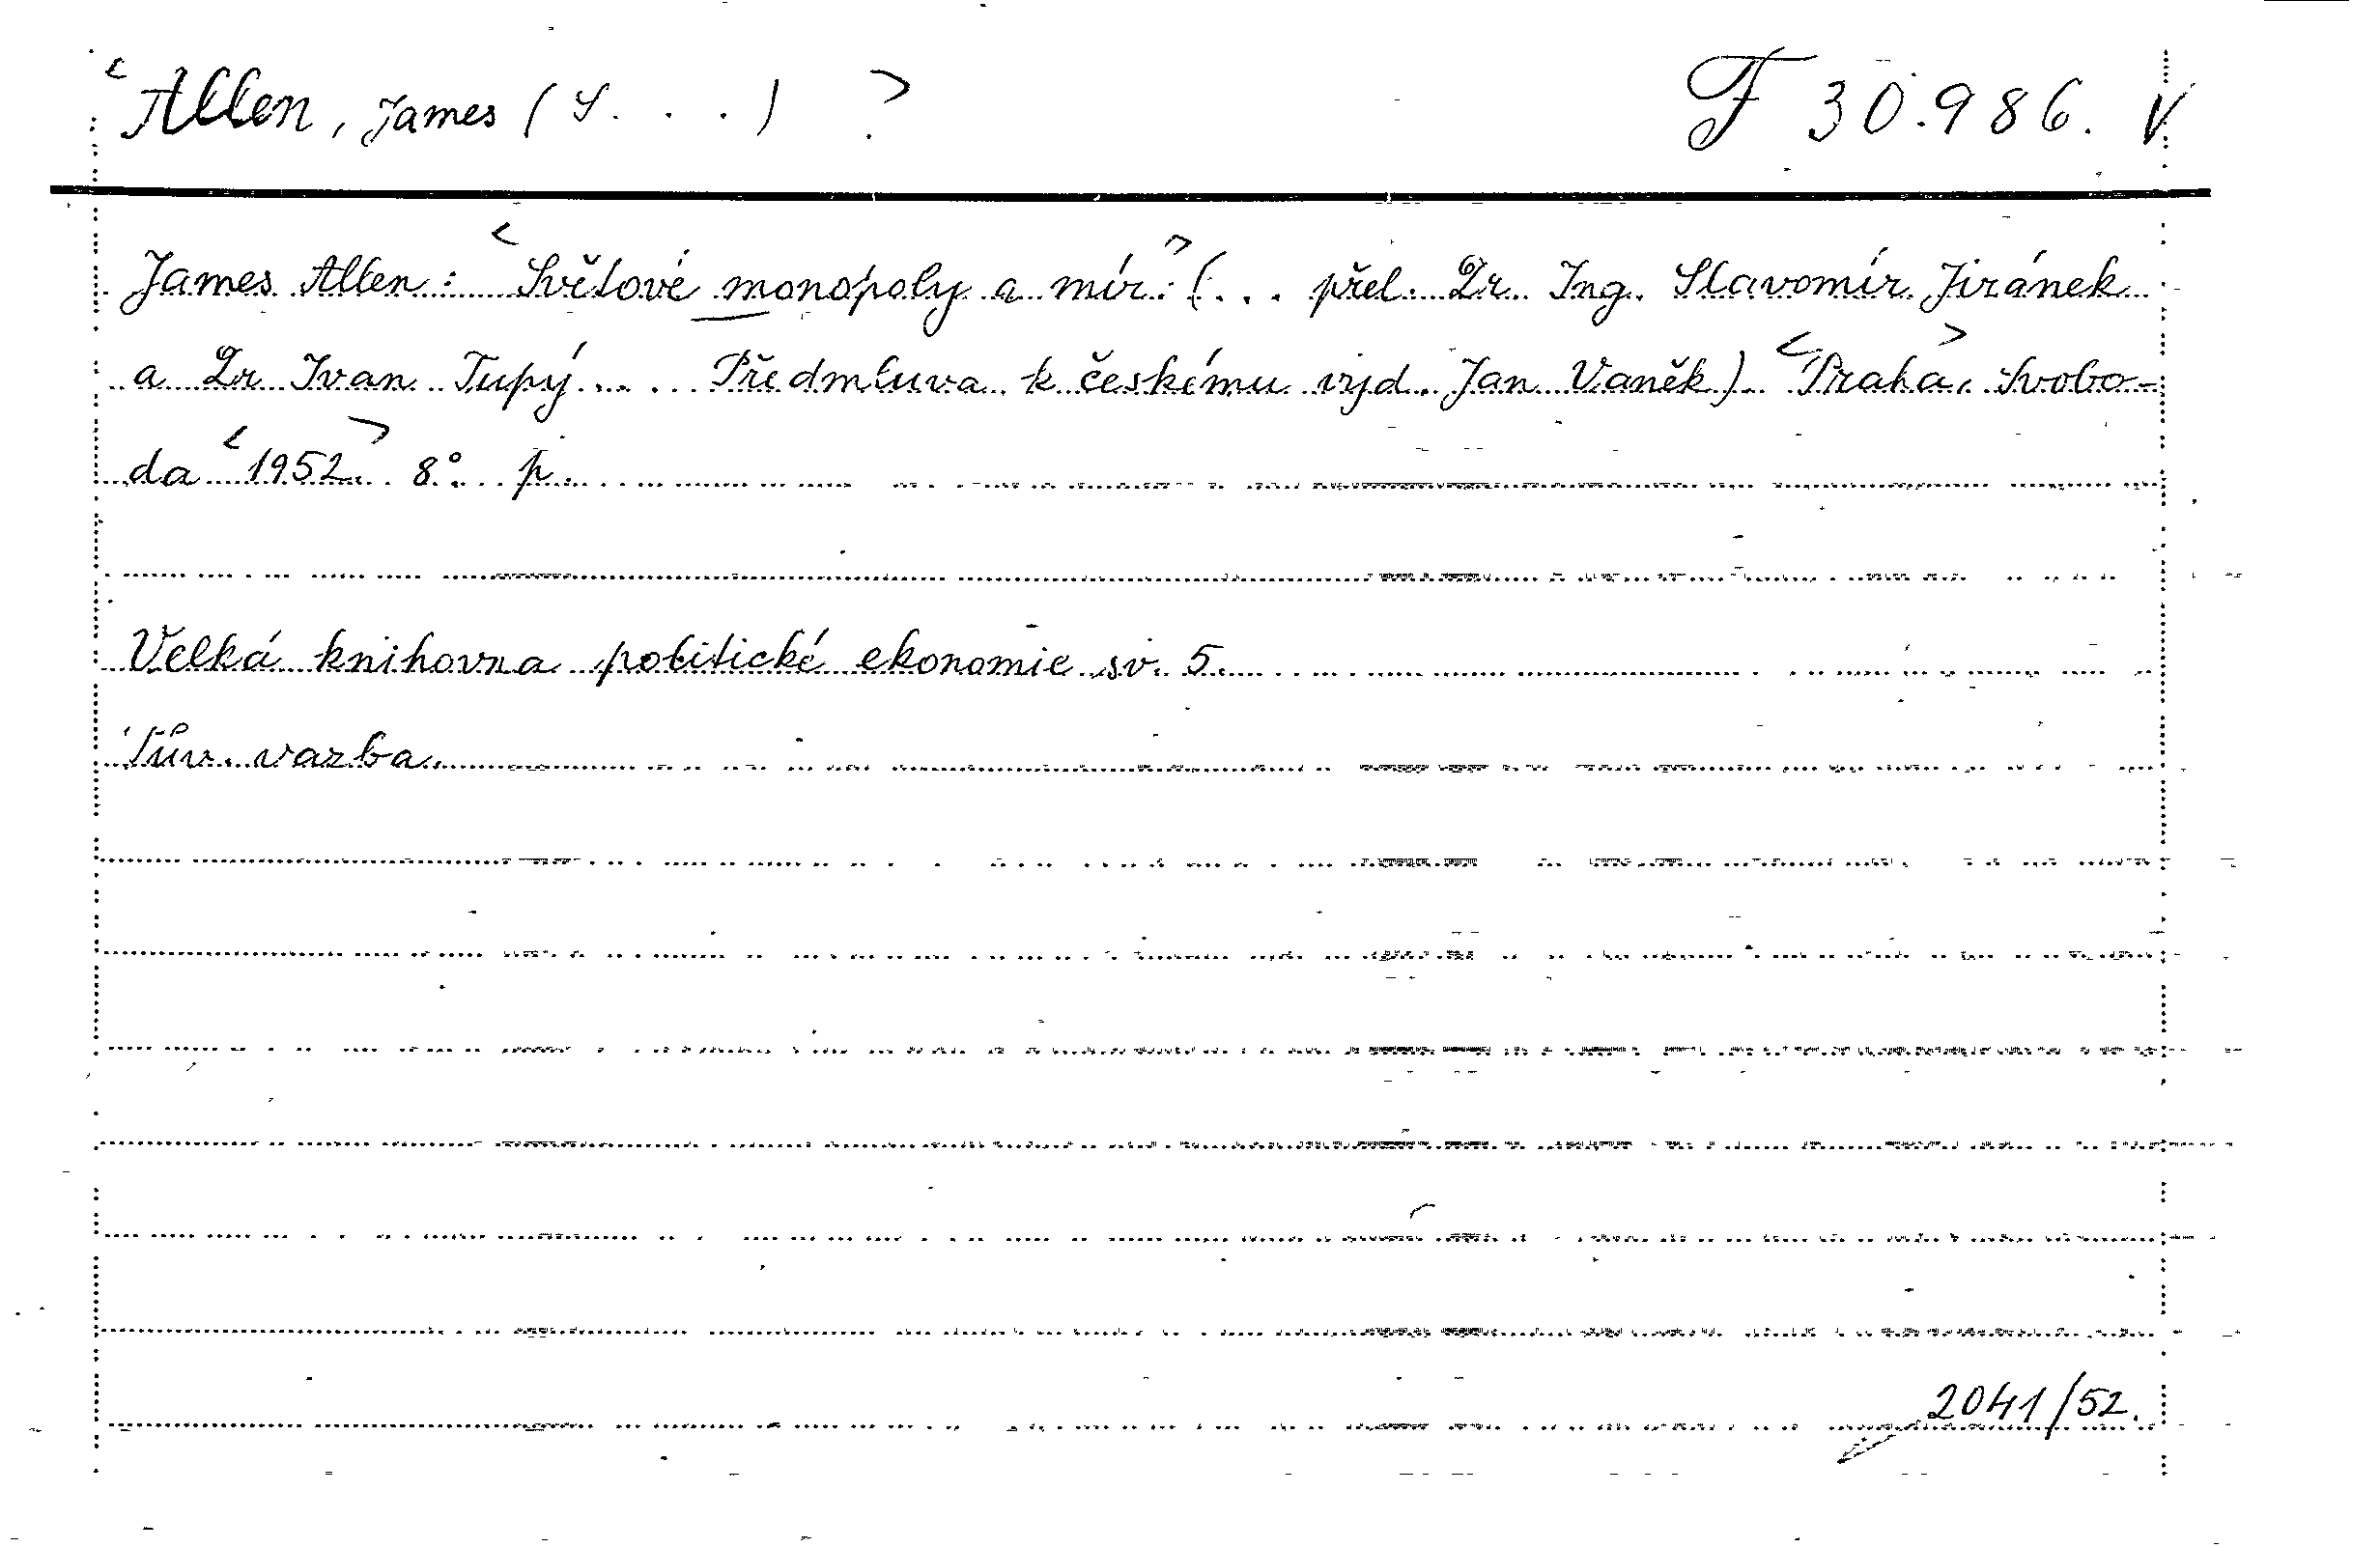 <Allen, James (S. . . ) > F 30.986. V
James Allen: <Světové monopoly a mír.> (. . . přel. Dr. Ing. Slavomír Jiránek
a Dr Ivan Tupý . . . . Předmluva k českému vyd. Jan Vaněk) <Praha>, Svobo-
da <1952>. 8°. p.
Velká knihovna politické ekonomie sv. 5.
Pův. vazba.
2041/52.